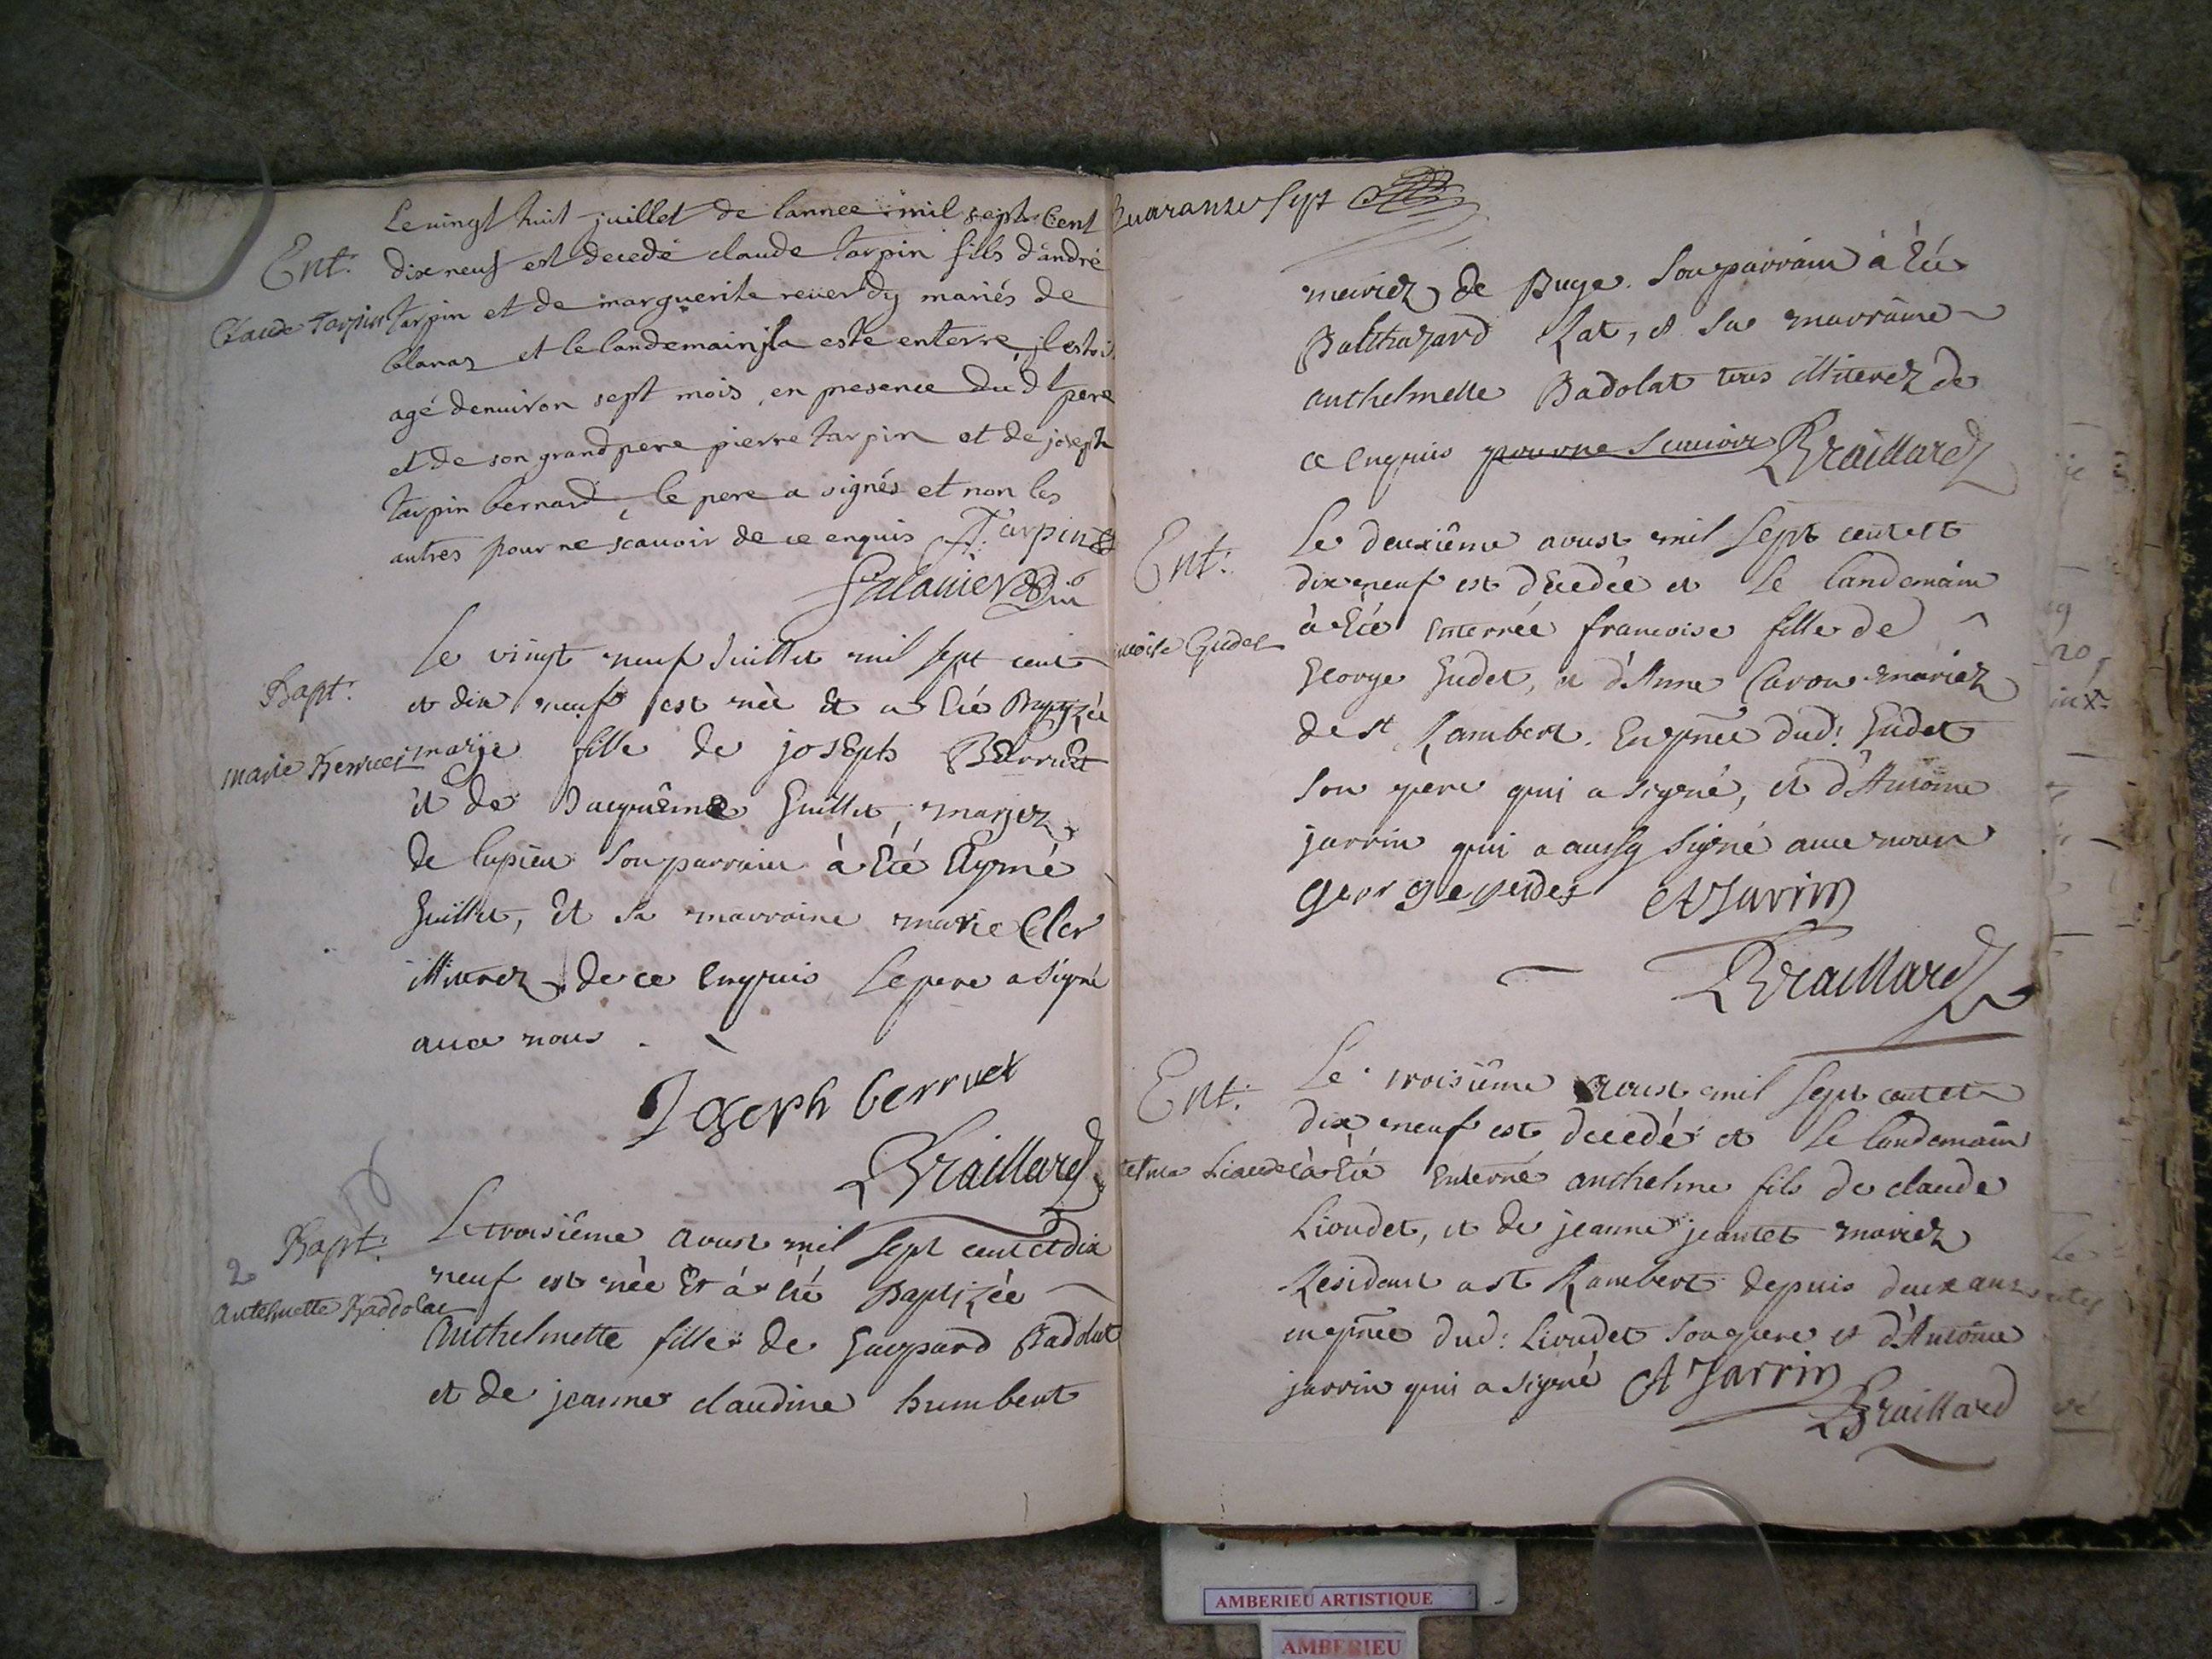 Le vingt huit juillet de lannee mil sept Cent
Ent.
dix neuf est decedé claude tarpin fils dandré
Claude Tarpin
tarpin et de marguerite reverdy mariés de
blanaz et le landemain jla esté enterré, jl estoit
agé denuiron sept mois, en presence du dt pere
et de son grand pere pierre tarpin et de joseph
tarpin bernard, le pere a signés et non les
autres pour ne scauoir de ce enquis A. tarpin
Bapt.
Le vingt neuf Juillet mil sept cent
et dix neuf est née et a été Baptizée
Marie Berruet
marje fille de joseph Berruet
et de Jacquéme Guillet, marjez
de lupieu son parrain à été Aymé
Guillet, et sa marraine marie Cler
illiterez de ce enquis le pere a signé
auec nous.
Joseph berruet
Braillard
Bapt.
Le troisiéme aoust mil sept cent et dix
2
neuf est née Et á été Baptizée
Antelmette Baddolat
Anthelmette fille de Gaspard Badolat
et de jeanne claudine humbert
Quarante Sept
mariez de Buge. Son parrain à été
Balthazard Lat, et sa marraine
anthelmette Badolat tous illiterez de
ce enquis pour ne scauoir Braillard
Ent.
Le deuxiéme aoust mil sept cent et
dix neuf est decedée et le landemain
à été enterrée francoise fille de
Gudet
George Gudet, et d'Anne Caron mariez
de st Rambert. En pnce dud. Gudet
son pere qui a signé, et d'Antoine
jarrin qui a aussy signé auec nous
George gudet A Jarrin
Braillard
Ent.
Le troisiéme aoust mil sept cent et
dix neuf est decedé et le landemain
à été enterré anthelme fils de claude
Lioudet, et de jeanne jeantet mariez
Residant a st Rambert depuis deux ans
en pnce dud: Lioudet son pere et d'Antoine
jarrin qui a signé A Jarrin
Braillard
AMBERIEU ARTISTIQUE
AMBERIEU